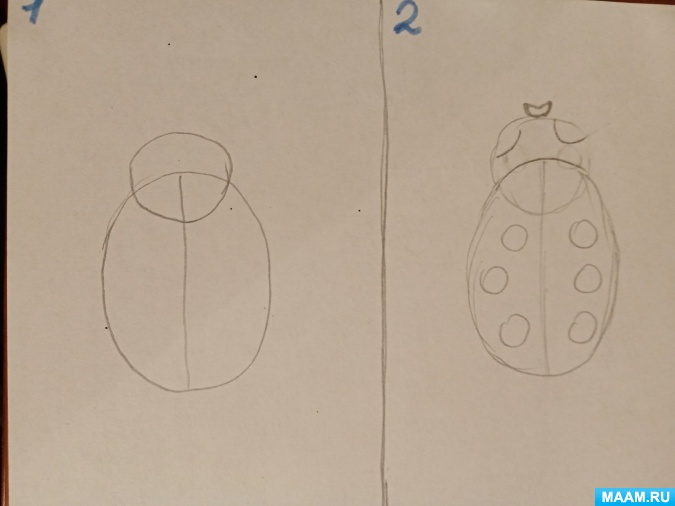 1
2
MAAM.RU